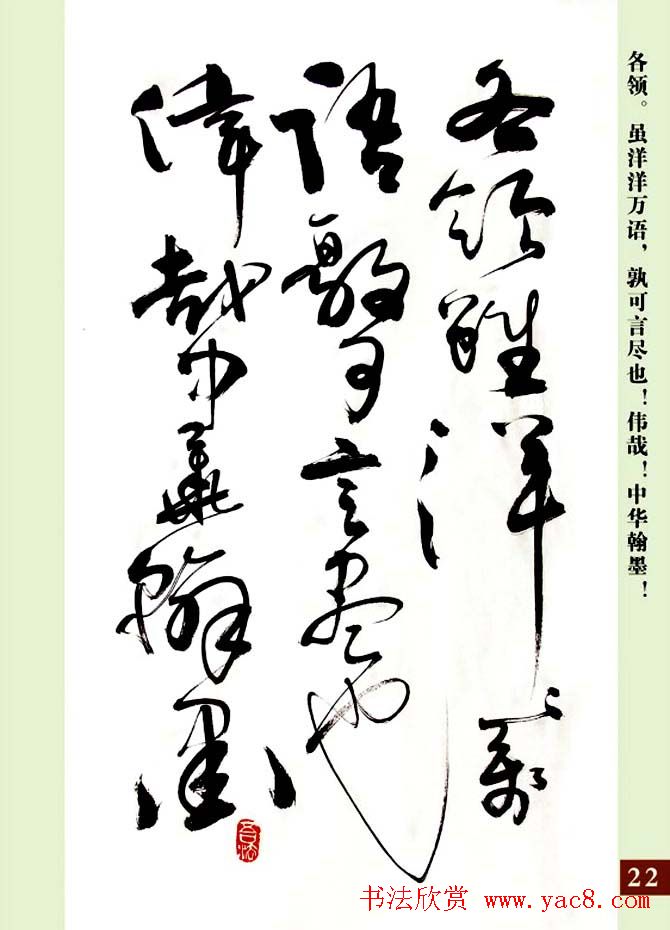 各领虽洋洋万
语孰可言尽也
伟哉中华翰墨
各领。虽洋洋万语，孰可言尽也！伟哉！中华翰墨！
22
书法欣赏 www.yac8.com